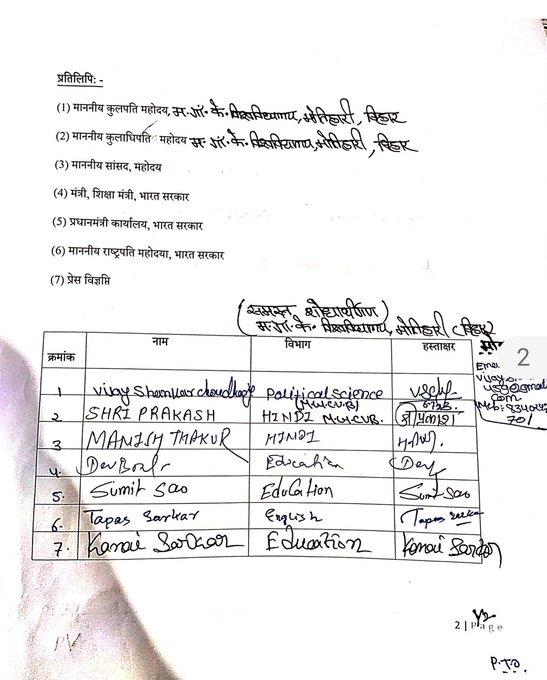 प्रतिलिपि: -
(1) माननीय कुलपति महोदय, म. गाँ. के. विश्वविद्यालय, मोतिहारी, बिहार
(2) माननीय कुलाधिपति महोदय म. गाँ. के. विश्वविद्यालय, मोतिहारी, बिहार
(3) माननीय सांसद, महोदय
(4) मंत्री, शिक्षा मंत्री, भारत सरकार
(5) प्रधानमंत्री कार्यालय, भारत सरकार
(6) माननीय राष्ट्रपति महोदया, भारत सरकार
(7) प्रेस विज्ञप्ति
(समस्त शोधार्थीगण)
म. गाँ. के. विश्वविद्यालय, मोतिहारी (बिहार
क्रमांक नाम विभाग हस्ताक्षर
1 Vijay Shankar Choudhary Political science
2 SHRI PRAKASH HINDI
3 MANISH THAKUR HINDI मनीष
4. Education Dev
5. Sumit Sao Education Sumit Sao
6. Tapas Sarkar English Tapas Sarkar
7. Kanai Sarkar Education Kanai Sarkar
2
2 | Page
P.T.O.